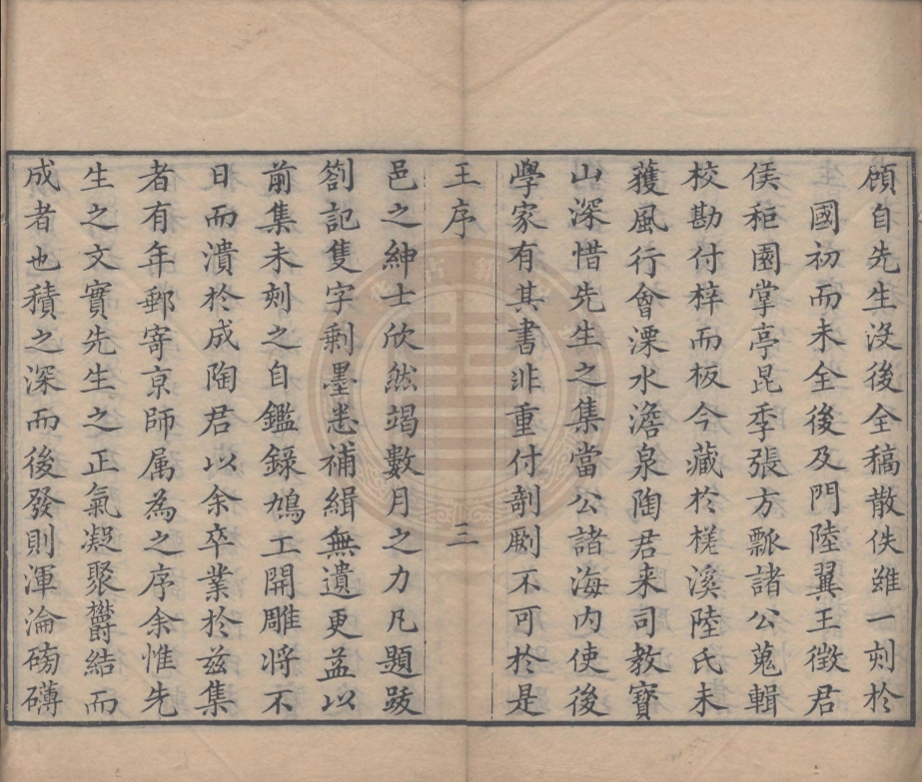 顧自先生沒後全稿散佚雖一刻於
國初而未全後及門陸翼王徵君
侯秬園掌亭昆季張方瓢諸公蒐輯
校勘付梓而板今藏於槎溪陸氏未
獲風行會溧水澹泉陶君来司教寳
山深惜先生之集當公諸海内使後
學家有其書非重付剞劂不可於是
王序
三
邑之紳士欣然竭數月之力凡題跋
劄記隻字剩墨悉補緝無遺更益以
前集未刻之自鑑録鳩工開雕將不
日而潰於成陶君以余卒業於兹集
者有年郵寄京師属為之序余惟先
生之文實先生之正氣凝聚欝結而
成者也積之深而後發則渾淪磅礴